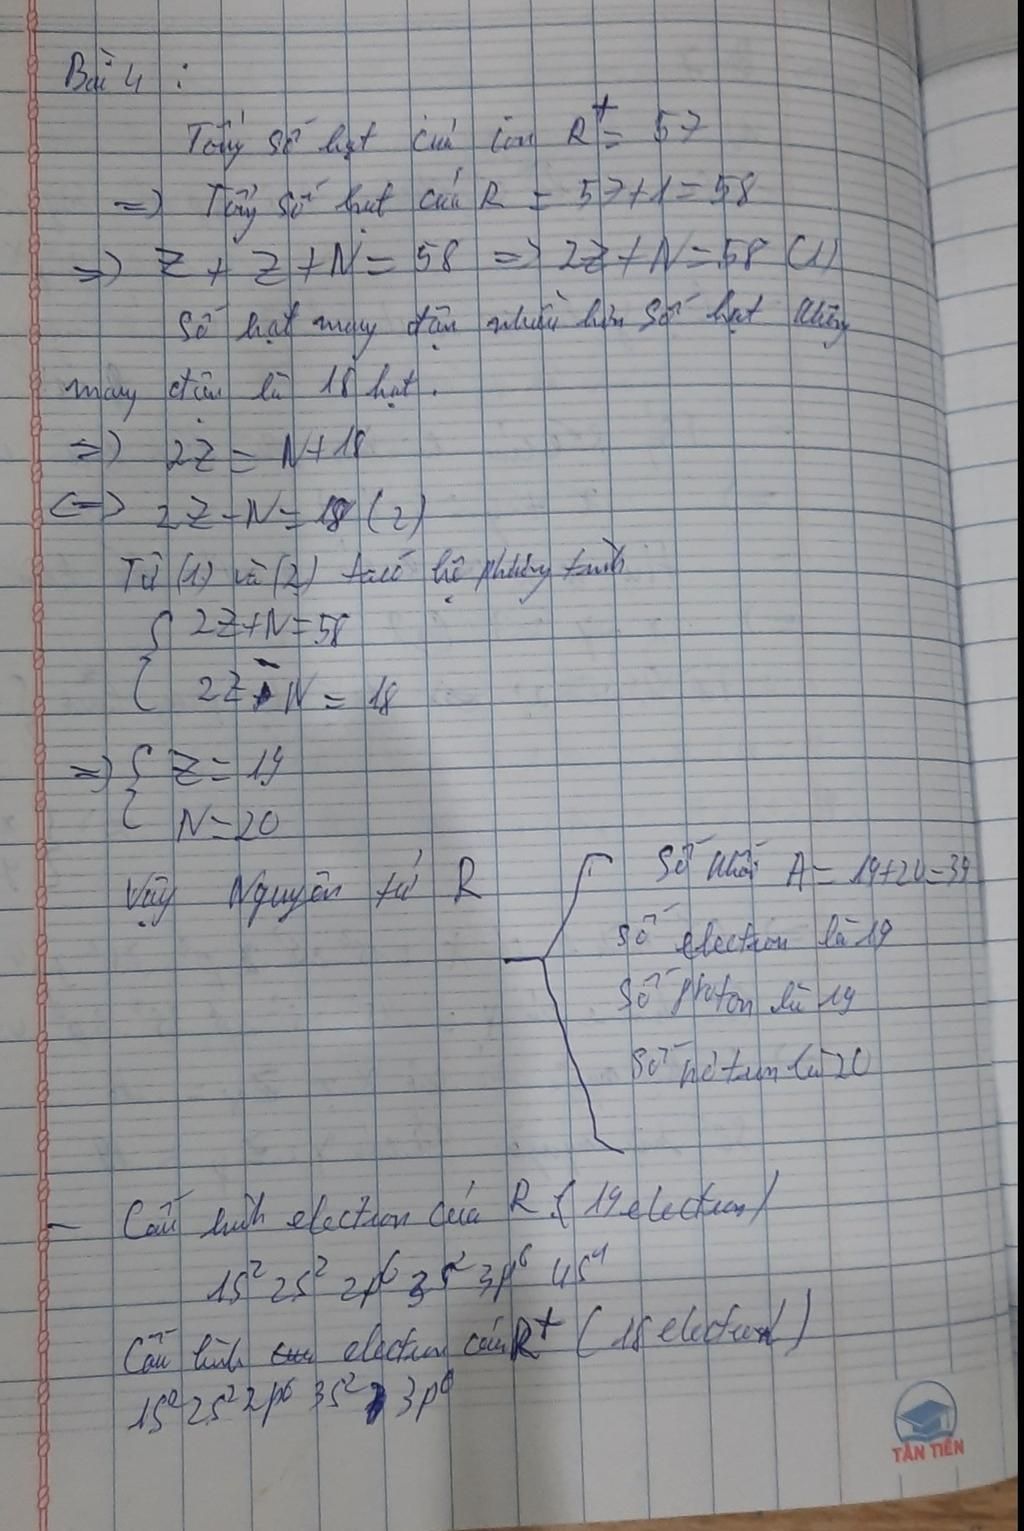 Bài 4 :
Tổng số hạt của ion R⁺ = 57
=> Tổng số hạt của R = 57+1=58
=> Z + Z + N = 58 => 2Z + N = 58 (1)
Số hạt mang điện nhiều hơn số hạt không
mang điện là 18 hạt.
=> 2Z = N+18
<=> 2Z - N = 18 (2)
Từ (1) và (2) ta có hệ phương trình
{ 2Z+N=58
2Z - N = 18
=> { Z = 19
N=20
Vậy Nguyên tử R
Số khối A = 19+20=39
Số electron là 19
Số proton là 19
Số nơtron là 20
- Cấu hình electron của R (19 electron)
1s² 2s² 2p⁶ 3s² 3p⁶ 4s¹
Cấu hình electron của R⁺ (18 electron)
1s² 2s² 2p⁶ 3s² 3p⁶
TÂN TIẾN